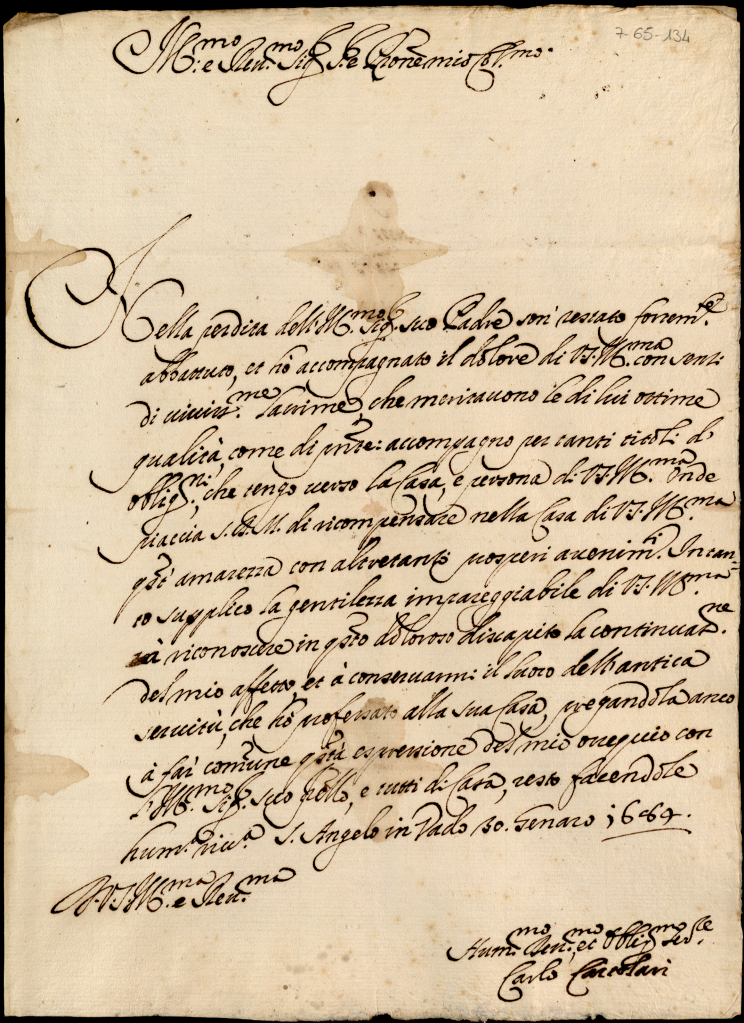 7-65-134
Ill.mo e Rev.mo Sig.r S.r e Prone mio Col.mo
Nella perdita dell'Ill.mo Sig.r suo Padre son restato fortem.te
abbattuto, et hò accompagnato il dolore di V.S. Ill.ma con senti
di viviss.me lacrime, che meritavono le di lui ottime
qualità, come di pnte: accompagno per tanti titoli d'
oblig.ni, che tengo verso la Casa, e persona di V.S. Ill.ma Onde
piaccia S.D.M. di ricompensare nella Casa di V.S. Ill.ma
qsta amarezza con altretanti prosperi avenim.ti. In tan=
to supplico la gentilezza impareggiabile di V.S. Ill.ma
à riconoscere in qsto doloroso discapito la continuat.ne
del mio affetto, et à conservarmi il luoco dell'antica
servitù, che hò professato alla sua Casa, pregandola anco
à far comune qsta espressione del mio ossequio con
l'Ill.mo Sig.r suo frello, e tutti di Casa, resto facendole
hum.e riv.a S. Angelo in Vado 30. Genaro 1664.
D. V.S. Ill.ma e Rev.ma
Hum.mo Dev.mo, et Oblig.mo Ser.re
Carlo